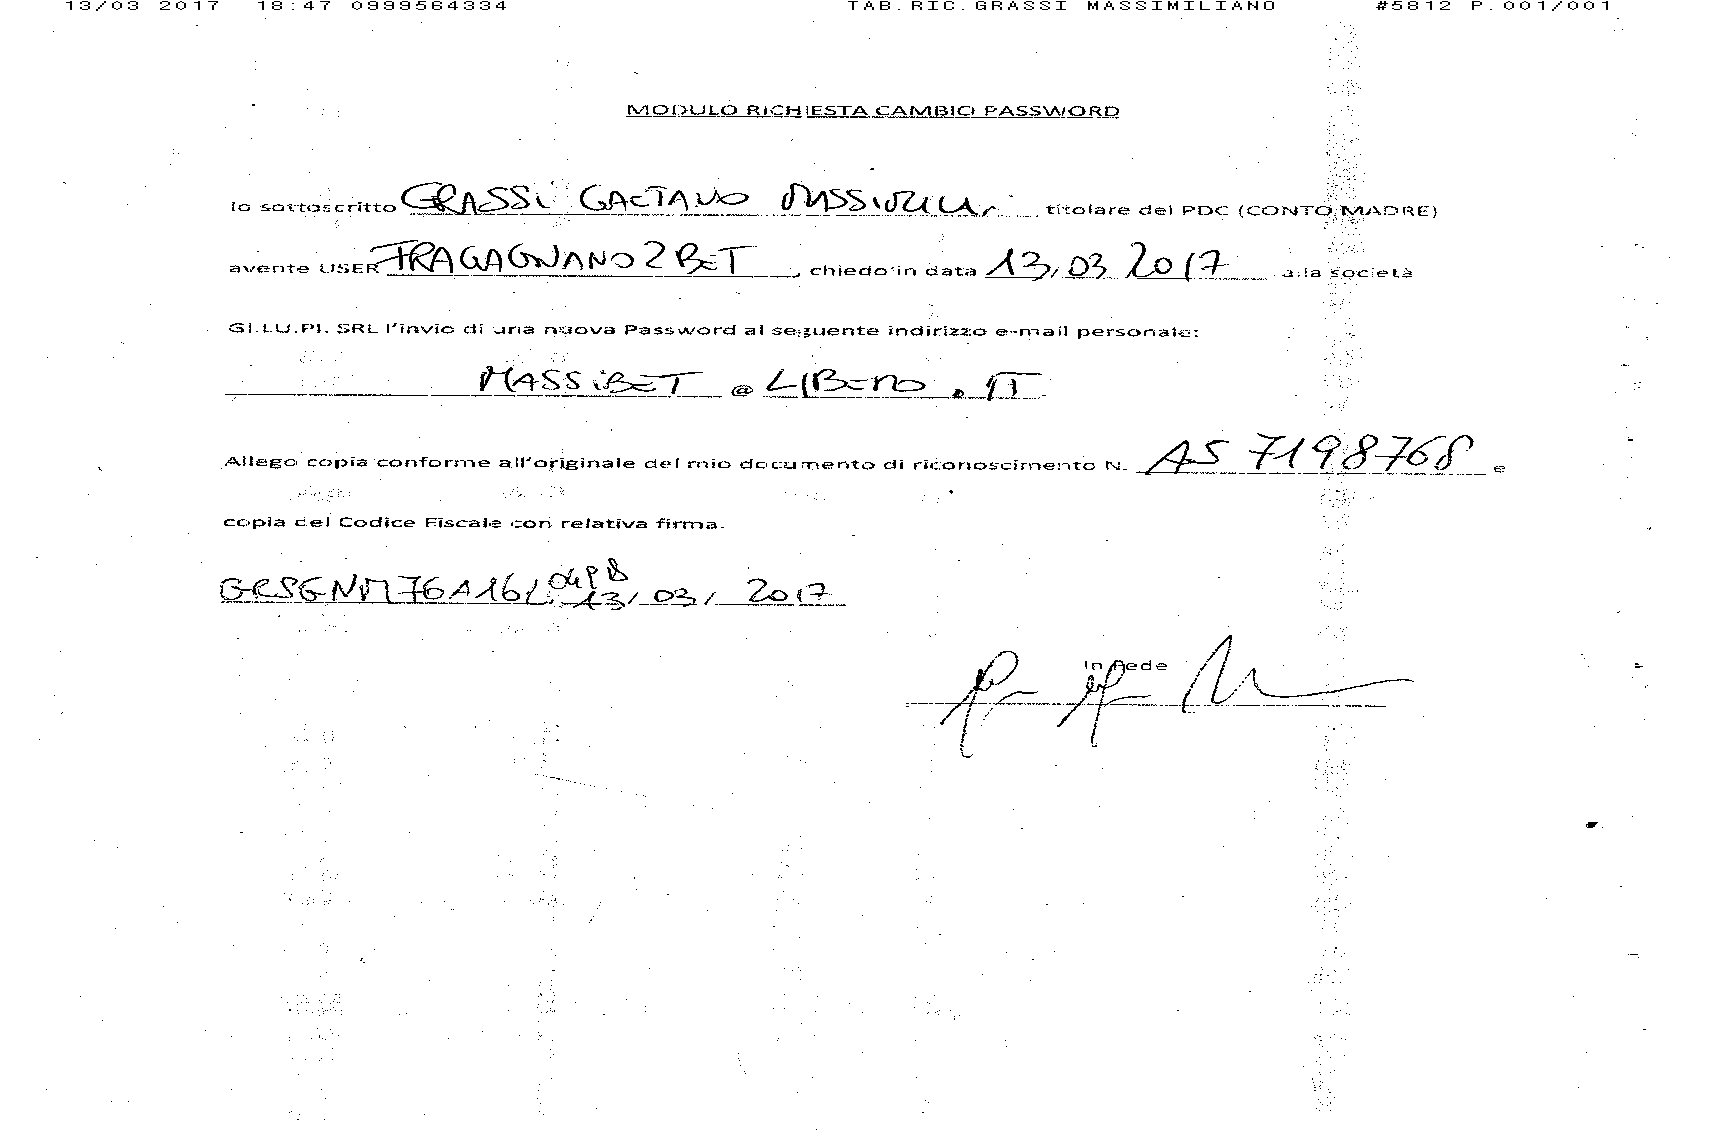 13/03 2017 18:47 0999564334 TAB.RIC.GRASSI MASSIMILIANO #5812 P.001/001
MODULO RICHIESTA CAMBIO PASSWORD
Io sottoscritto GRASSi GAETANO titolare del PDC (CONTO MADRE)
avente USER FRAGAGNANO2BET , chiedo in data 13/03 2017 alla società
GI.LU.PI. SRL l'invio di una nuova Password al seguente indirizzo e-mail personale:
MASSiBET @ LIBERO . IT
Allego copia conforme all'originale del mio documento di riconoscimento N. AS 7198768 e
copia del Codice Fiscale con relativa firma.
13/03/ 2017
In Fede